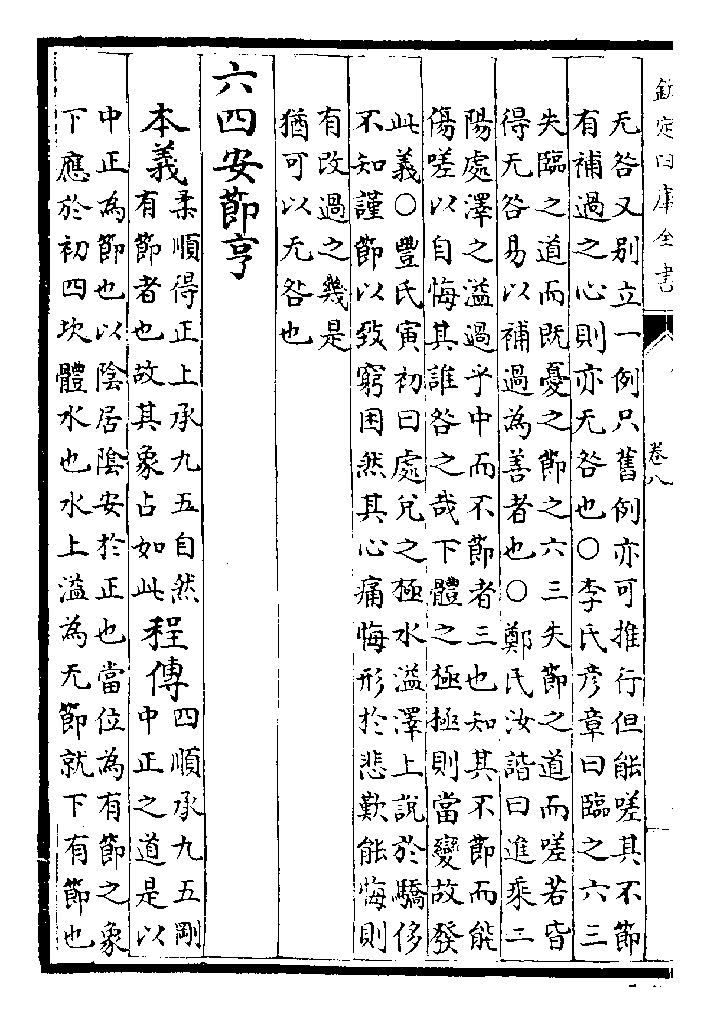 欽定四庫全書 卷八
无咎又别立一例只舊例亦可推行但能嗟其不節
有補過之心則亦无咎也○李氏彦章曰臨之六三
失臨之道而既憂之節之六三失節之道而嗟若皆
得无咎易以補過為善者也○鄭氏汝諧曰進乘二
陽處澤之溢過乎中而不節者三也知其不節而能
傷嗟以自悔其誰咎之哉下體之極極則當變故發
此義○豐氏寅初曰處兌之極水溢澤上說於驕侈
不知謹節以致窮困然其心痛悔形於悲歎能悔則
有改過之幾是
猶可以无咎也
六四安節亨
本義
柔順得正上承九五自然
有節者也故其象占如此
程傳
四順承九五剛
中正之道是以
中正為節也以陰居陰安於正也當位為有節之象
下應於初四坎體水也水上溢為无節就下有節也